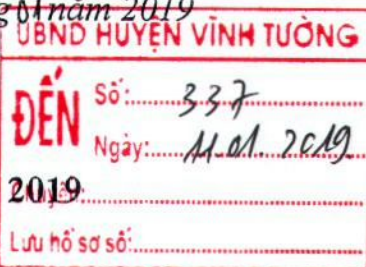 năm 2019
UBND HUYỆN VĨNH TƯỜNG
ĐẾN
Số:.......337.......
Ngày:....11.01.2019
2019
Lưu hồ sơ số:.......